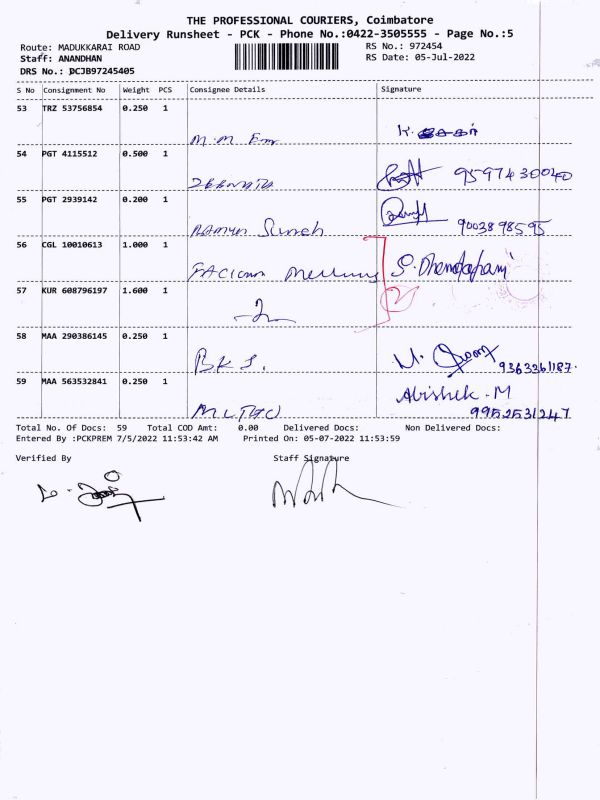 THE PROFESSIONAL COURIERS, Coimbatore
Delivery Runsheet - PCK - Phone No.:0422-3505555 - Page No.:5
Route: MADUKKARAI ROAD RS No.: 972454
Staff: ANANDHAN RS Date: 05-Jul-2022
DRS No.: DCJB97245405
S No Consignment No Weight PCS Consignee Details Signature
53 TRZ 53756854 0.250 1
M.M
54 PGT 4115512 0.500 1
9597430040
55 PGT 2939142 0.200 1
9003898595
56 CGL 10010613 1.000 1
S. Dhendapani
57 KUR 608796197 1.600 1
2
58 MAA 290386145 0.250 1
BKS. 9363361187.
59 MAA 563532841 0.250 1 Abishek.M
9952531247
Total No. Of Docs: 59 Total COD Amt: 0.00 Delivered Docs: Non Delivered Docs:
Entered By :PCKPREM 7/5/2022 11:53:42 AM Printed On: 05-07-2022 11:53:59
Verified By Staff Signature